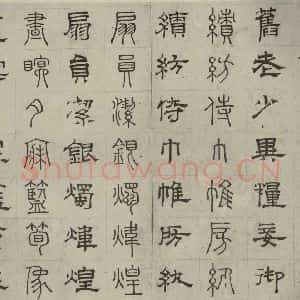 舊老少異糧妾御
績紡侍巾帷房紈
績紡侍巾帷房紈
扇員潔銀燭煒煌
扇員潔銀燭煒煌
晝瞑夕寐籃筍象
Shufawang.CN